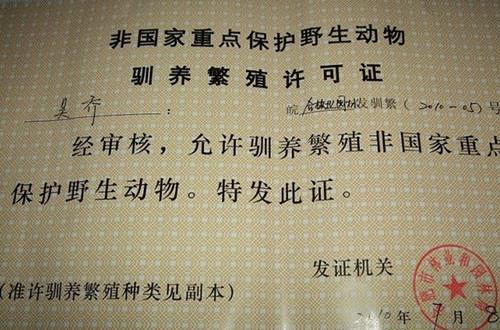 非国家重点保护野生动物
驯养繁殖许可证
吴乔： 皖 发驯繁（2010-05）号
经审核，允许驯养繁殖非国家重点
保护野生动物。特发此证。
发证机关
肥市林业和园林
（准许驯养繁殖种类见副本）
2010年7月8